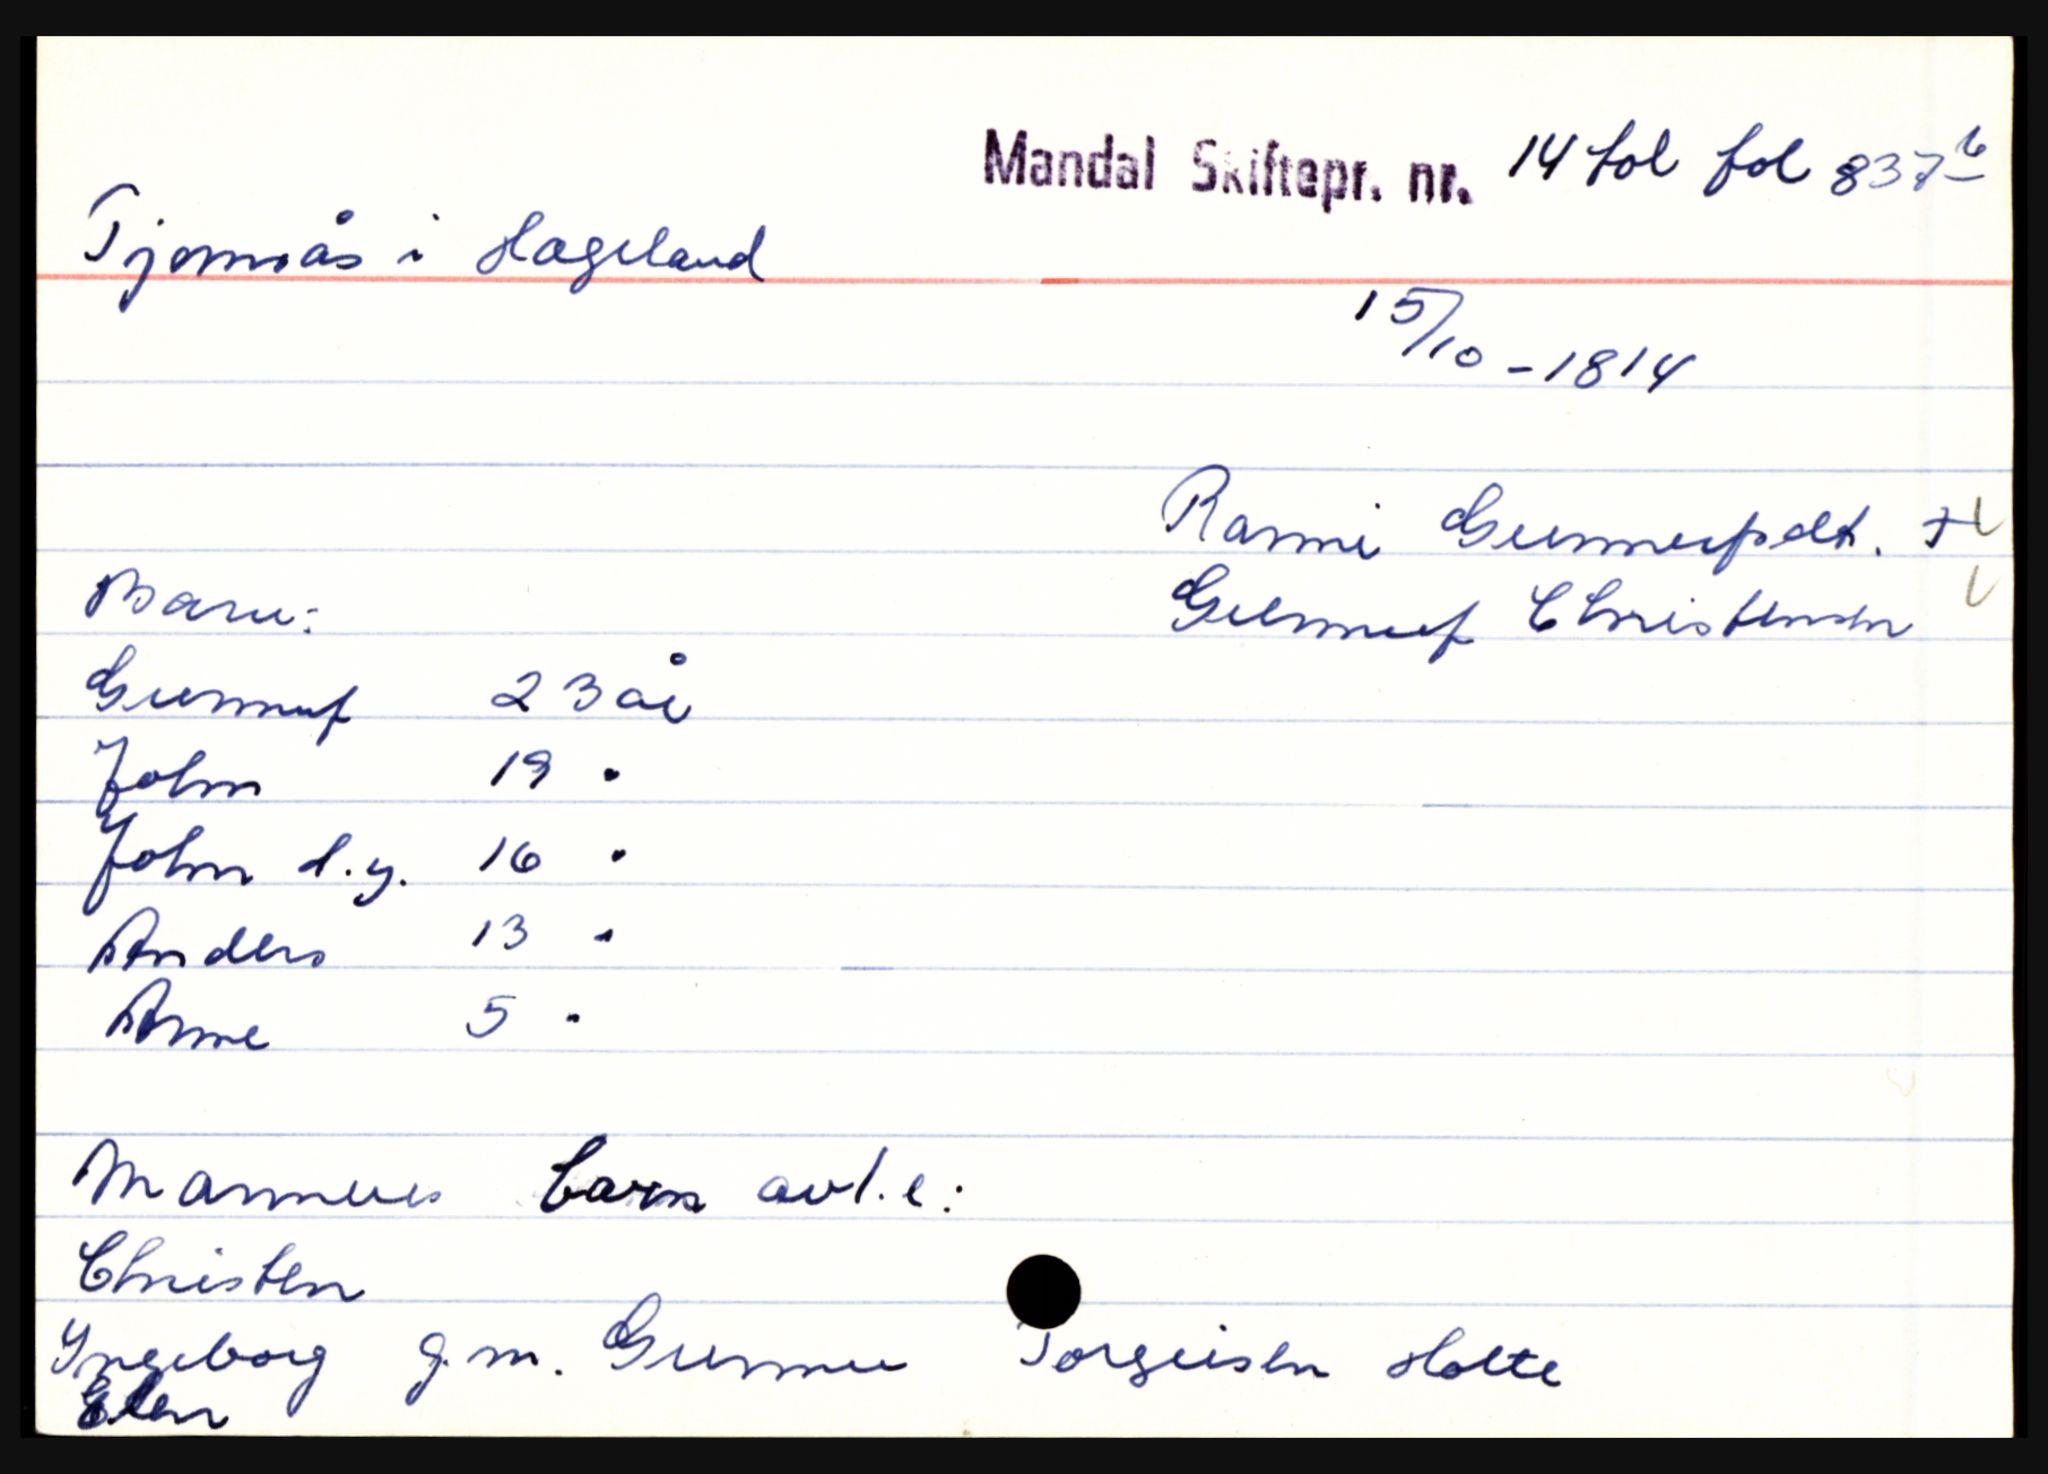 Mandal Skiftepr. nr. 14 fol fol 837b
Tjomsås i Hægeland
15/10 - 1814
Ranni Gunnufsdt. +
Barn: Gunnuf Christensen
Gunnuf 23 år
John 19 "
John d.y. 16 "
Anders 13 "
Anne 5 "
Mannens barn avl.e:
Christen
Ingeborg g.m. Gunnar Torgeisen Holte
Elen